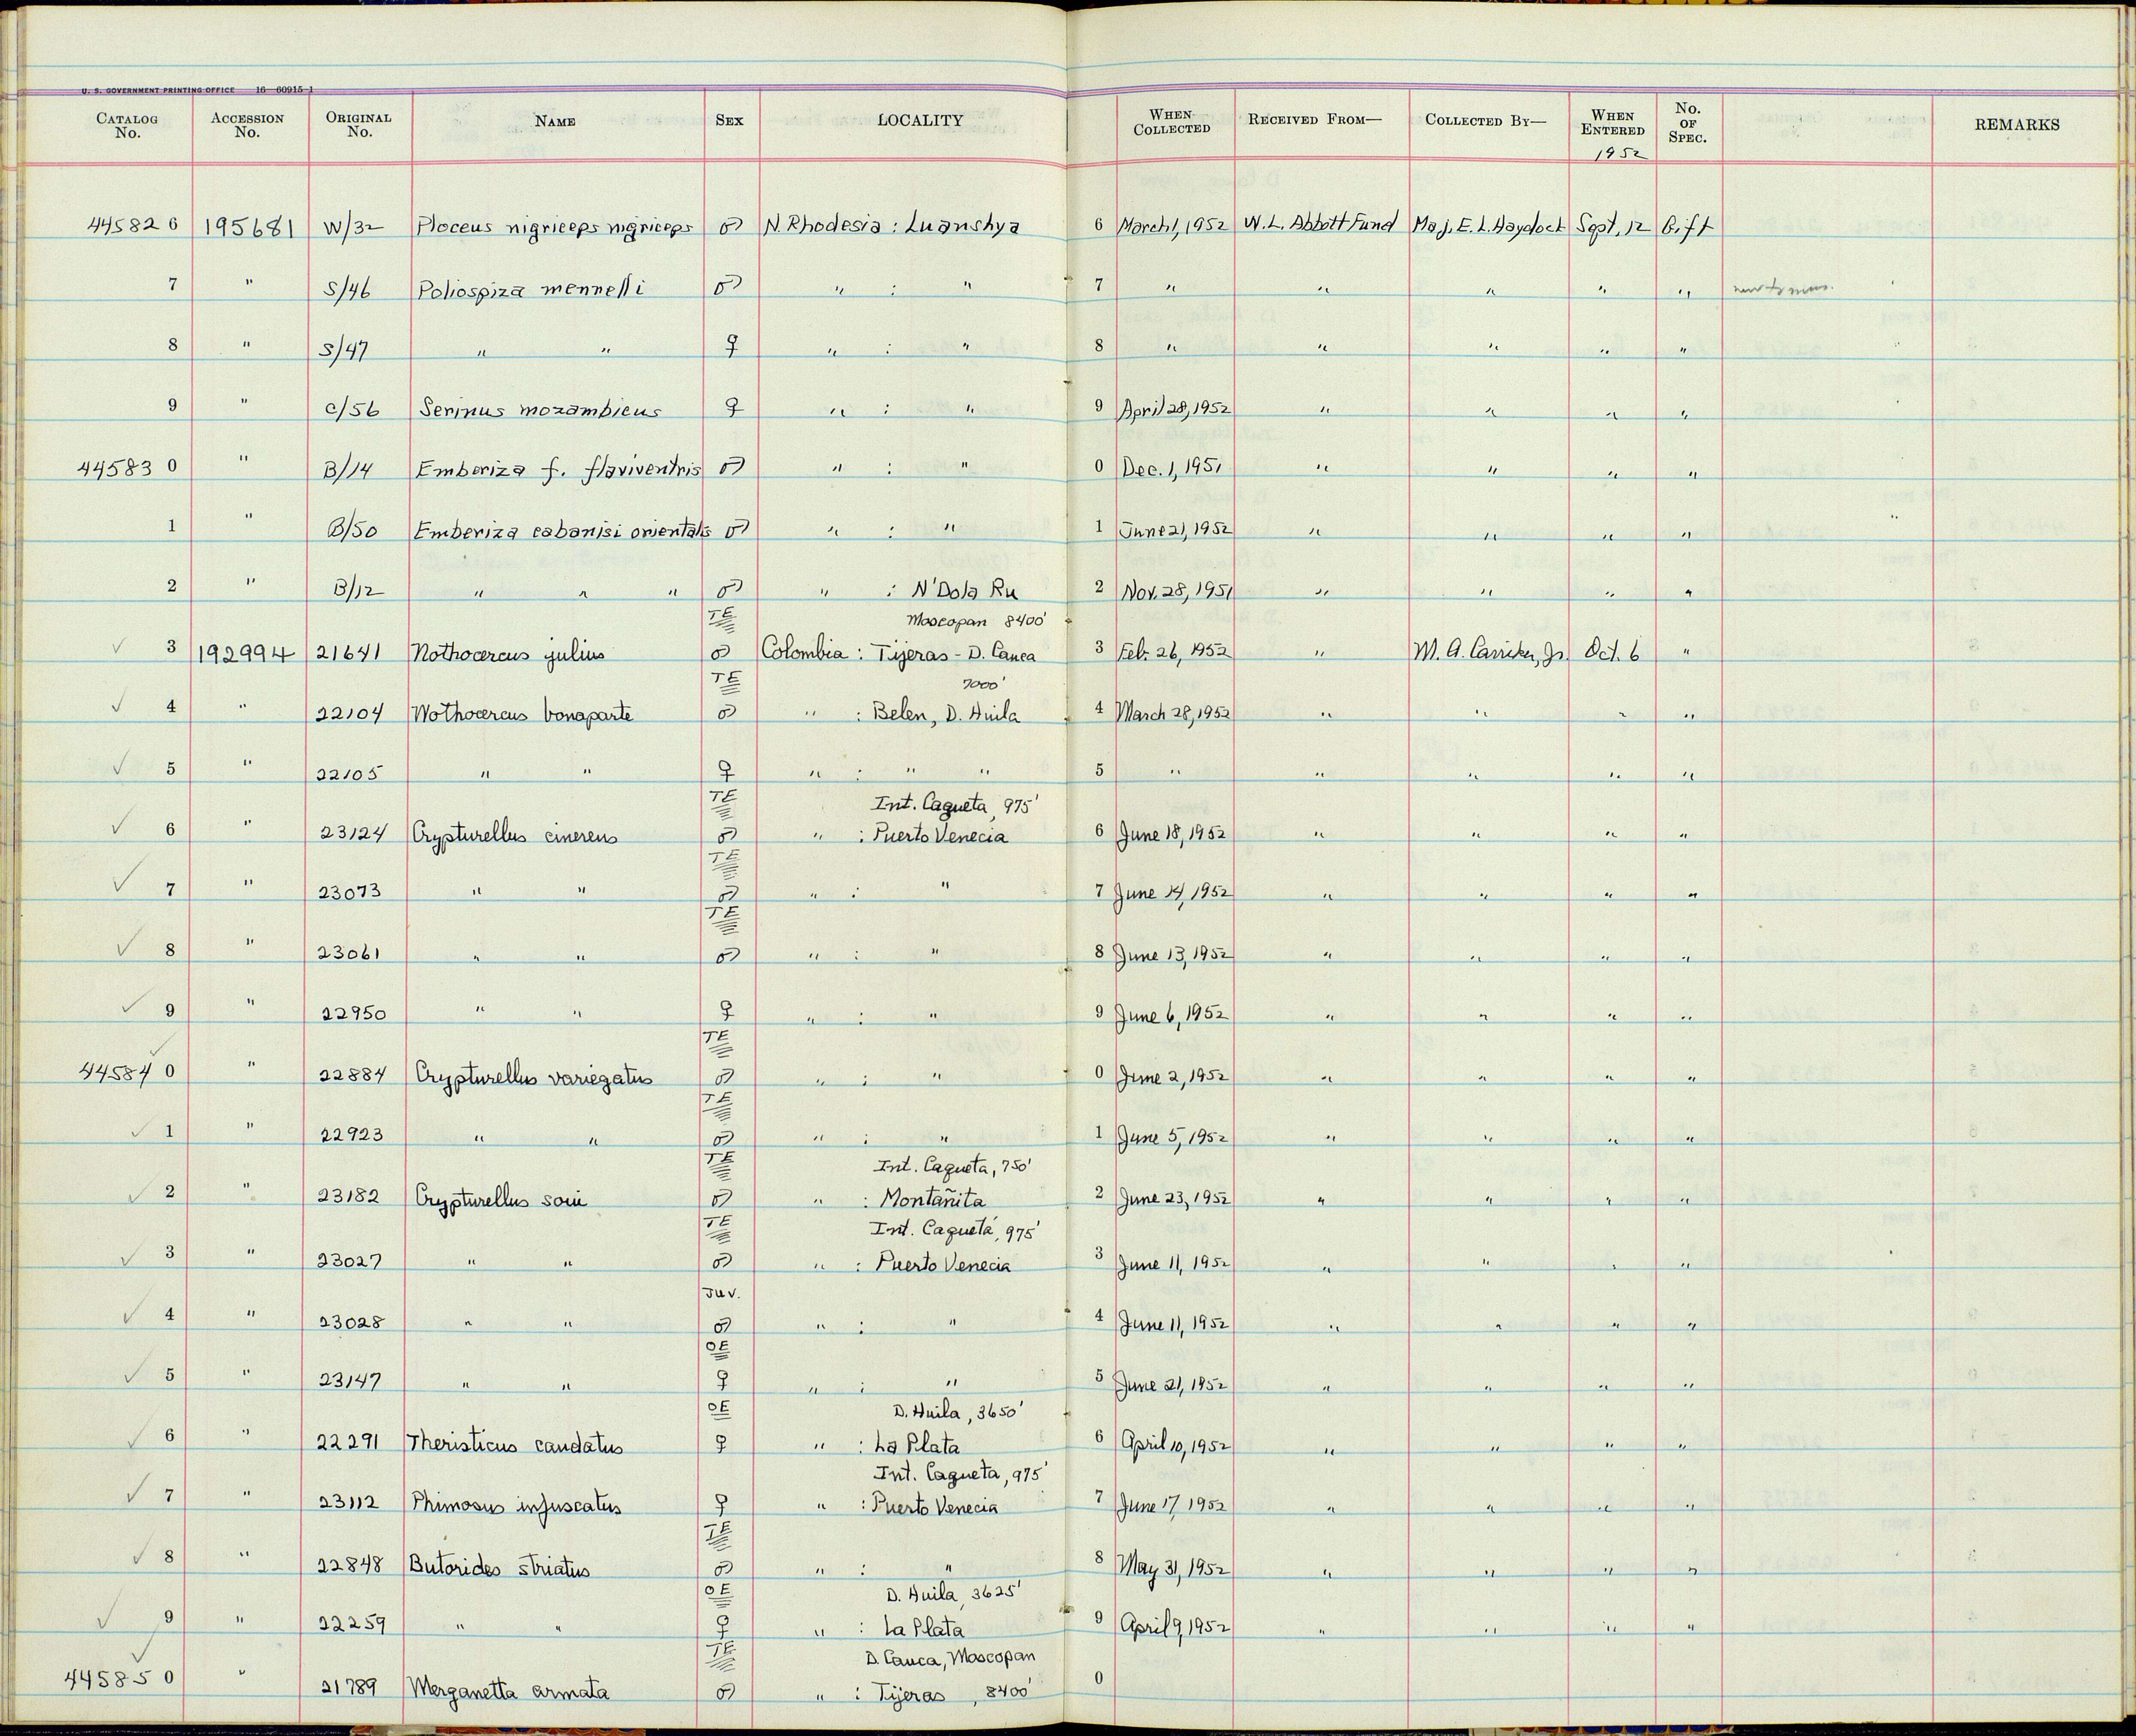 U. S. GOVERNMENT PRINTING OFFICE 16—60915-1
CATALOG No. ACCESSION No. ORIGINAL No. NAME SEX LOCALITY WHEN COLLECTED RECEIVED FROM— COLLECTED BY— WHEN ENTERED No. OF SPEC. REMARKS
1952
445826 195681 W/32 Ploceus nigriceps nigriceps ♂ N. Rhodesia : Luanshya 6 March 1, 1952 W. L. Abbott Fund Maj. E. L. Haydock Sept. 12 Gift
7 " S/46 Poliospiza mennelli ♂ " : " 7 " " " " "
8 " S/47 " " ♀ " : " 8 " " " " "
9 " C/56 Serinus mozambicus ♀ " : " 9 April 28, 1952 " " " "
445830 " B/14 Emberiza f. flaviventris ♂ " : " 0 Dec. 1, 1951 " " " "
1 " B/50 Emberiza cabanisi orientalis ♂ " : " 1 June 21, 1952 " " " "
2 " B/12 " " " ♂ " : N'Dola Ru 2 Nov. 28, 1951 " " " "
TE Moscopan 8400'
✓ 3 192994 21641 Nothocercus julius ♂ Colombia : Tijeras - D. Cauca 3 Feb. 26, 1952 " M. A. Carriker, Jr. Oct. 6 "
TE 7000'
✓ 4 " 22104 Nothocercus bonaparte ♂ " : Belen, D. Huila 4 March 28, 1952 " " " "
✓ 5 " 22105 " " ♀ " : " " 5 " " " " "
TE Int. Caqueta, 975'
✓ 6 " 23124 Crypturellus cinereus ♂ " : Puerto Venecia 6 June 18, 1952 " " " "
TE
✓ 7 " 23073 " " ♂ " : " 7 June 14, 1952 " " " "
TE
✓ 8 " 23061 " " ♂ " : " 8 June 13, 1952 " " " "
✓ 9 " 22950 " " ♀ " : " 9 June 6, 1952 " " " "
✓ TE
445840 " 22884 Crypturellus variegatus ♂ " : " 0 June 2, 1952 " " " "
TE
✓ 1 " 22923 " " ♂ " : " 1 June 5, 1952 " " " "
TE Int. Caqueta, 750'
✓ 2 " 23182 Crypturellus soui ♂ " : Montañita 2 June 23, 1952 " " " "
TE Int. Caqueta, 975'
✓ 3 " 23027 " " ♂ " : Puerto Venecia 3 June 11, 1952 " " " "
Juv.
✓ 4 " 23028 " " ♂ " : " 4 June 11, 1952 " " " "
OE
✓ 5 " 23147 " " ♀ " : " 5 June 21, 1952 " " " "
OE D. Huila, 3650'
✓ 6 " 22291 Theristicus caudatus ♀ " : La Plata 6 April 10, 1952 " " " "
Int. Caqueta, 975'
✓ 7 " 23112 Phimosus infuscatus ♀ " : Puerto Venecia 7 June 17, 1952 " " " "
TE
✓ 8 " 22848 Butorides striatus ♂ " : " 8 May 31, 1952 " " " "
OE D. Huila, 3625'
✓ 9 " 22259 " " ♀ " : La Plata 9 April 9, 1952 " " " "
✓ TE D. Cauca, Moscopan
445850 " 21789 Merganetta armata ♂ " : Tijeras, 8400' 0